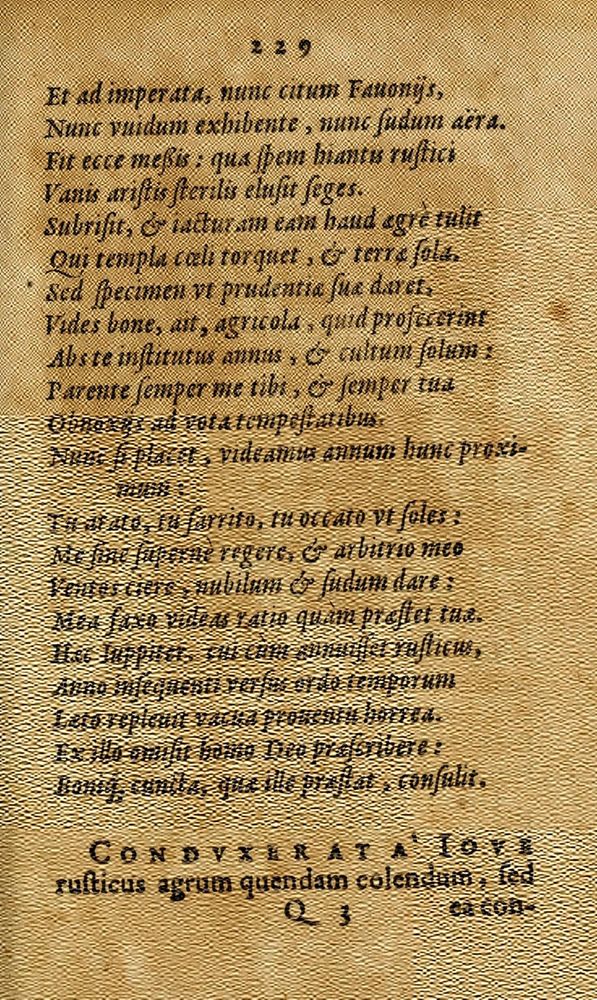 229
Et ad imperata, nunc citum Fauonijs,
Nunc vuidum exhibente, nunc ſudum aëra.
Fit ecce meßis: qua ſpem hiantis ruſtici
Vanis ariſtis ſterilis eluſit ſeges.
Subriſit, & iacturam eam haud ægrè tulit
Qui templa cœli torquet, & terræ ſola.
Sed ſpecimen vt prudentiæ ſuæ daret,
Vides bone, ait, agricola, quid profecerint
Abs te inſtitutus annus, & cultum ſolum:
Parente ſemper me tibi, & ſemper tua
Obnoxijs ad vota tempeſtatibus.
Nunc ſi placet, videamus annum hunc proxi-
mum:
Tu arato, tu ſarrito, tu occato vt ſoles:
Me ſine ſupernè regere, & arbitrio meo
Ventos ciere, nubilum & ſudum dare:
Mea faxo videas ratio quàm præſtet tuæ.
Hæc Iuppiter. cui cùm annuiſſet ruſticus,
Anno inſequenti verſus ordo temporum
Læto repleuit vacua prouentu horrea.
Ex illo omiſit homo Deo præſcribere:
Boniq̃, cuncta, quæ ille præſtat, conſulit.
CONDVXERAT A' IOVE
ruſticus agrum quendam colendum, ſed
Q 3
ea con-